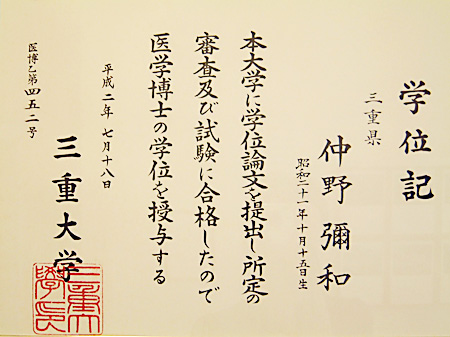 学位記
三重県
仲野彌和
昭和二十一年十月十五日生
本大学に学位論文を提出し所定の
審査及び試験に合格したので
医学博士の学位を授与する
平成二年七月十八日
医博乙第四五二号
三重大学